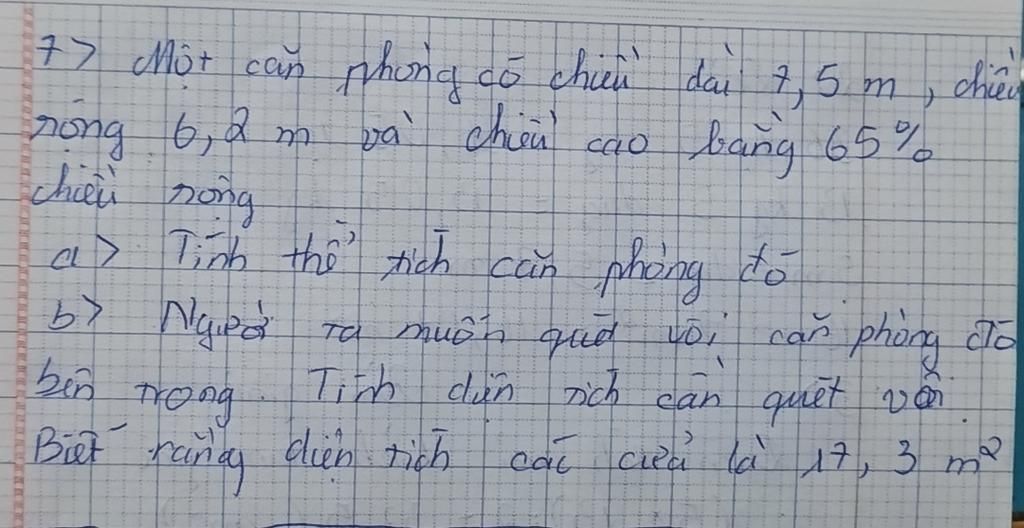 7> Một căn phòng có chiều dài 7,5 m, chiều
rộng 6,2 m và chiều cao bằng 65%
chiều rộng
a> Tính thể tích căn phòng đó
b> Người ta muốn quét vôi căn phòng đó
bên trong. Tính diện tích cần quét vôi.
Biết rằng diện tích các cửa là 17,3 m²